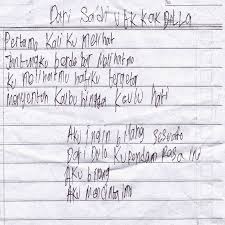 Dari Saidi Utk Kak DILLA
Pertama Kali Ku melihat
Jantungku berdebar melihatmu
Ku melihatmu hatiku tergeta
Menyentuh Kalbu hingga Ke ulu hati
Aku ingin bilang sesuatu
Dari Dulu Kupendam Rasa ini
Aku bilang
Aku mencintaimu